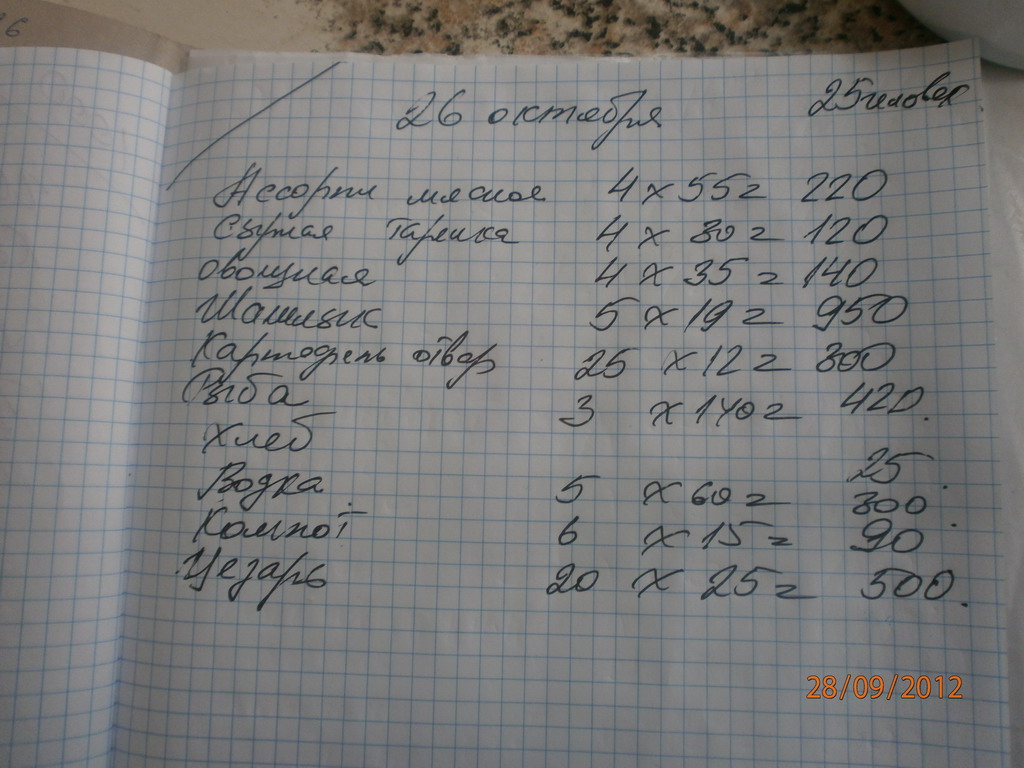 16
26 октября 25 человек
Ассорти мясное 4 x 55 = 220
Сырная тарелка 4 x 30 = 120
овощная 4 x 35 = 140
Шашлык 5 x 19 = 950
Картофель отвар 25 x 12 = 300
Рыба 3 x 140 = 420.
Хлеб 25.
Водка 5 x 60 = 300.
Компот 6 x 15 = 90
Цезарь 20 x 25 = 500.
28/09/2012